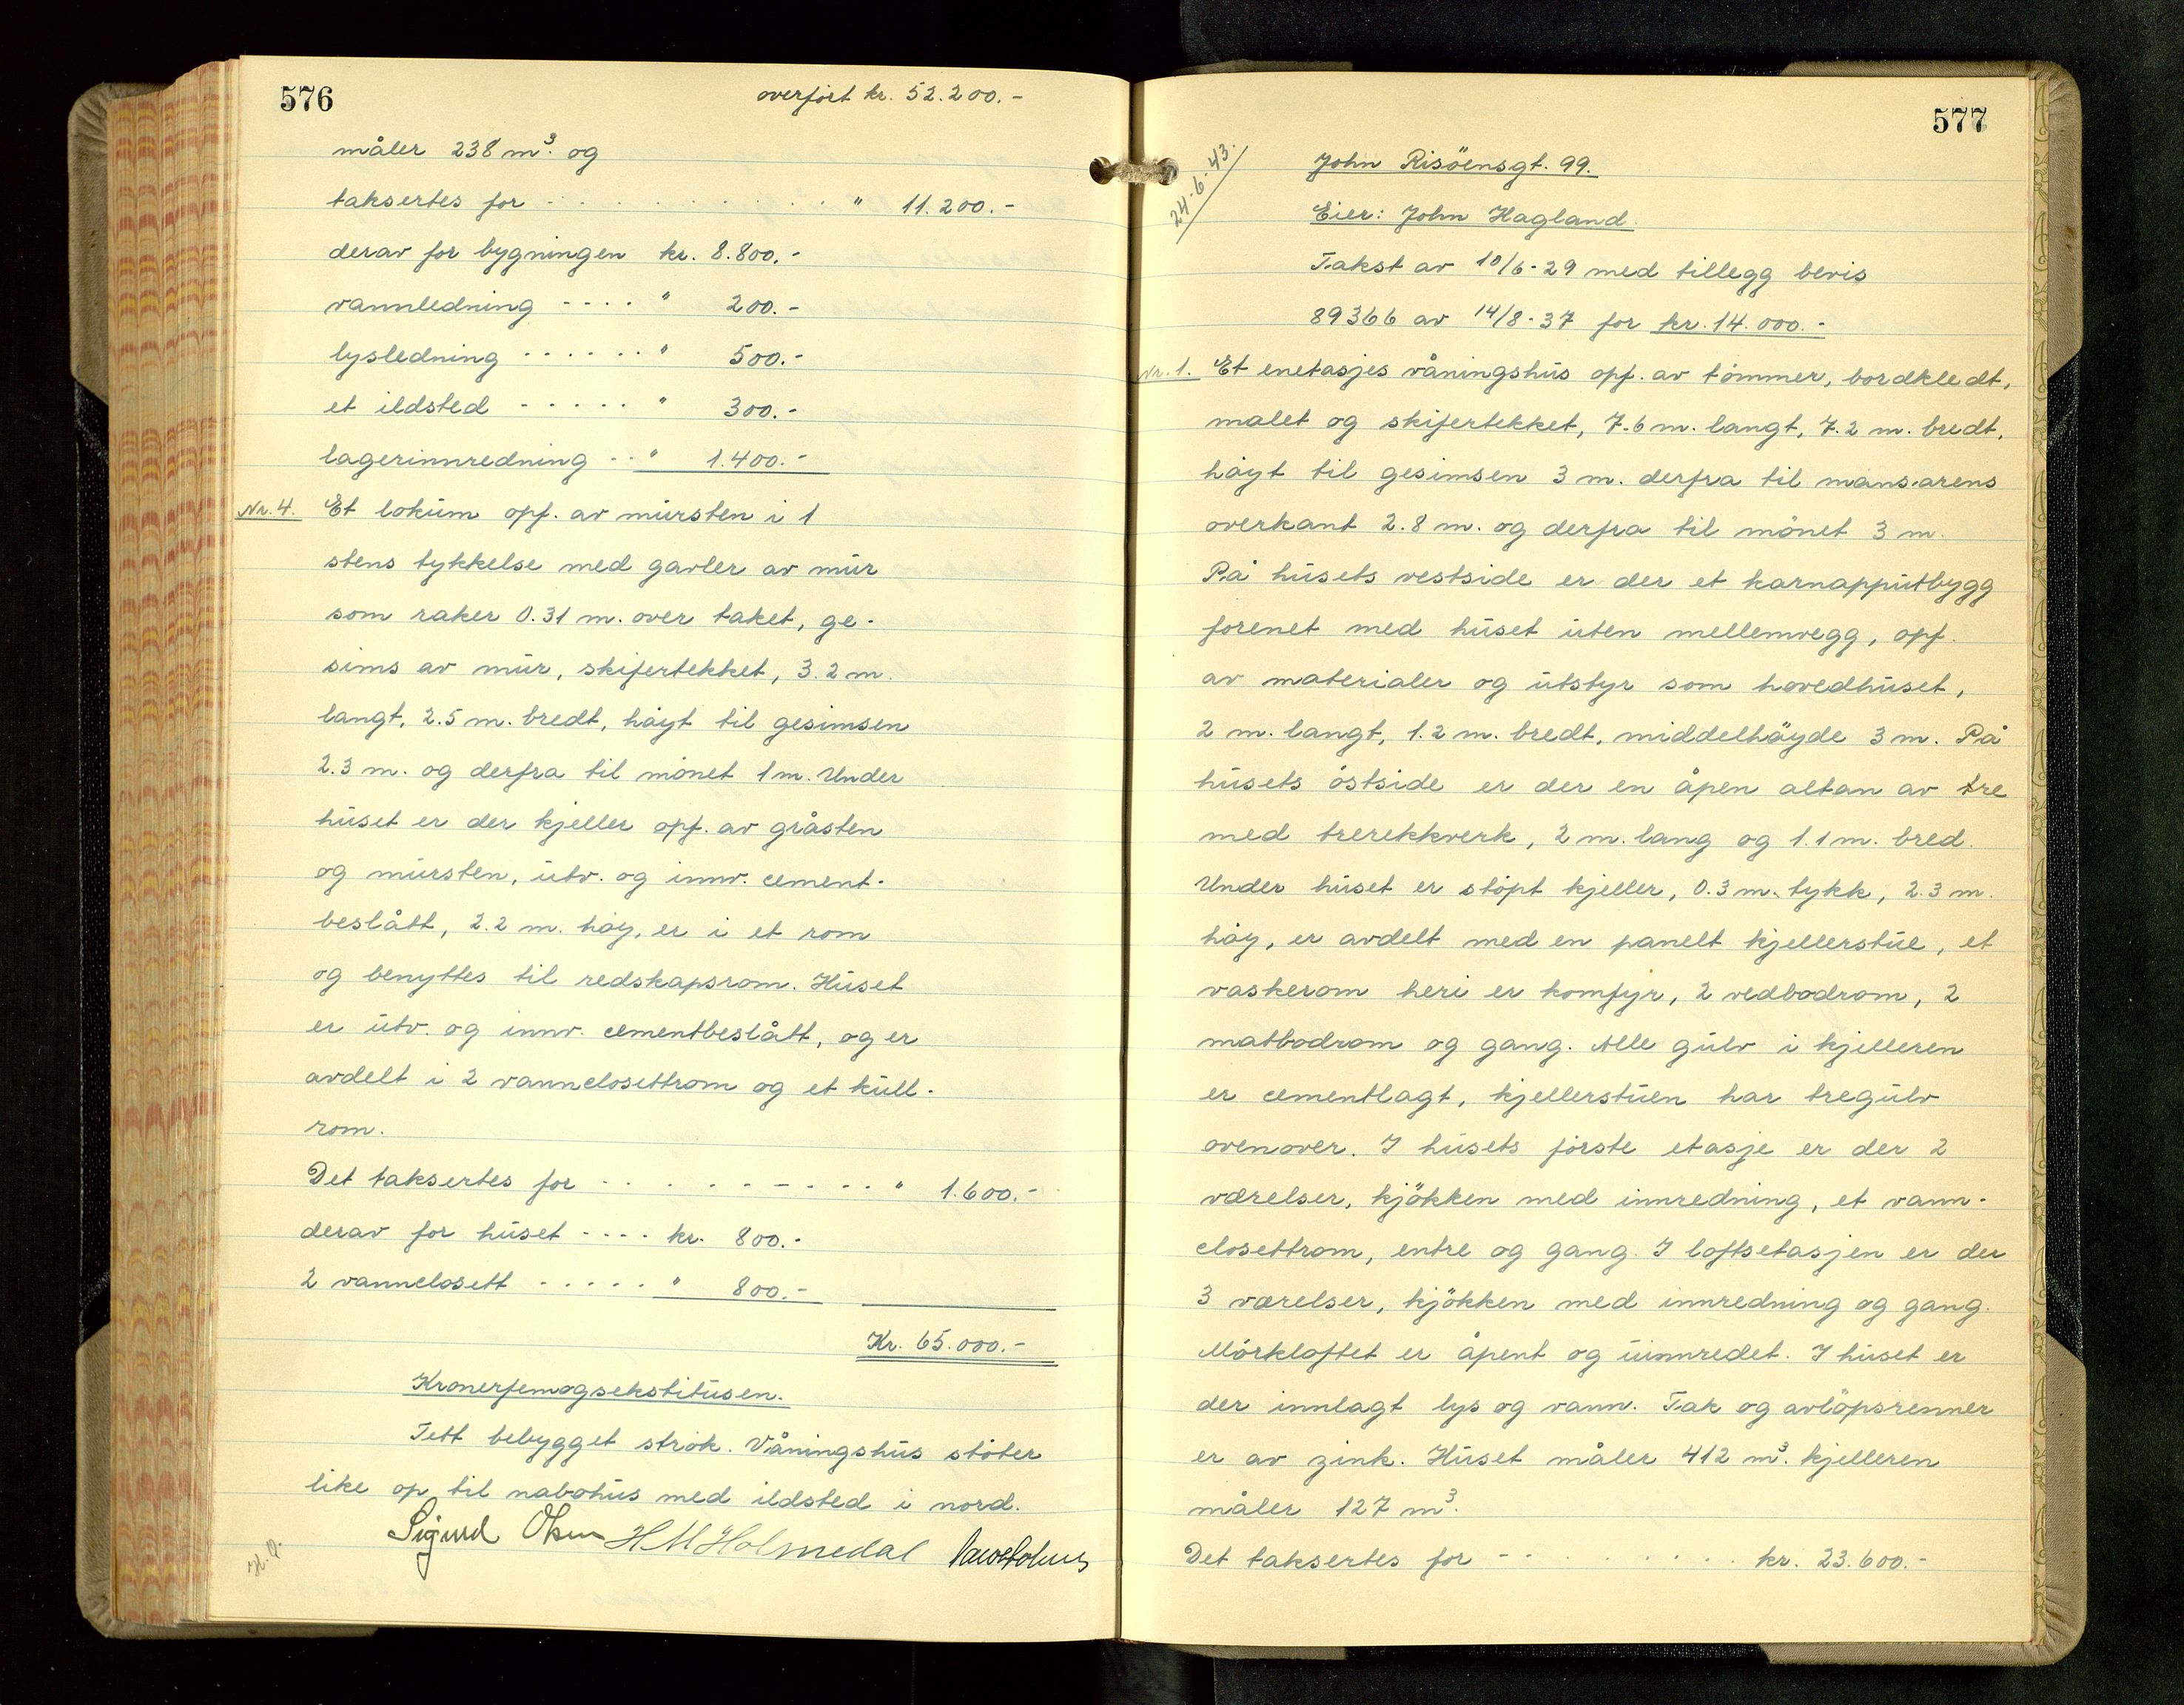 576
overført kr. 52.200.-
måler 238 m³. og
taksertes for - . . . . . . . . . . " 11.200.-
derav for bygningen kr. 8.800.-
vannledning - - - - " 200.-
lysledning - - - - - - " 500.-
et ildsted - - - - - " 300.-
lagerinnredning - - " 1.400.-
Nr. 4. Et lokum opf. av mursten i 1
stens tykkelse med gavler av mur
som raker 0.31 m. over taket, ge-
sims av mur, skifertekket, 3.2 m.
langt, 2.5 m. bredt, höyt til gesimsen
2.3 m. og derfra til mönet 1 m. Under
huset er der kjeller opf. av gråsten
og mursten, utv. og innv. cement-
beslått, 2.2 m. höy, er i et rom
og benyttes til redskapsrom. Huset
er utv. og innv. cementbeslått, og er
avdelt i 2 vannclosettrom og et kull-
rom.
Det taksertes for - - . . - - - - - - " 1.600.-
derav for huset - - - - kr. 800.-
2 vannclosett - - - - - " 800.-
Kr. 65.000.-
Kronerfemogsekstitusen.
Tett bebygget strök. Våningshus stöter
like op til nabohus med ildsted i nord.
Sigurd Olsen H M Holmedal
577
24.6.43.
John Risöensgt. 99.
Eier: John Hagland.
Takst av 10/6-29 med tillegg bevis
89366 av 14/8-37 for kr. 14.000.-
Nr. 1. Et enetasjes våningshus opf. av tömmer, bordkledt,
malet og skifertekket, 7.6 m. langt, 7.2 m. bredt,
höyt til gesimsen 3 m. derfra til mansarens
overkant 2.8 m. og derfra til mönet 3 m.
På husets vestside er der et karnapputbygg
forenet med huset uten mellemvegg, opf.
av materialer og utstyr som hovedhuset,
2 m. langt, 1.2 m. bredt, middelhöyde 3 m. På
husets östside er der en åpen altan av tre
med trerekkverk, 2 m. lang og 1.1 m. bred.
Under huset er stöpt kjeller, 0.3 m. tykk, 2.3 m.
höy, er avdelt med en panelt kjellerstue, et
vaskerom heri er komfyr, 2 vedbodrom, 2
matbodrom og gang. Alle gulv i kjelleren
er cementlagt, kjellerstuen har tregulv
ovenover. I husets förste etasje er der 2
værelser, kjökken med innredning, et vann-
closettrom, entre og gang. I loftsetasjen er der
3 værelser, kjökken med innredning og gang.
Mörkloftet er åpent og uinnredet. I huset er
der innlagt lys og vann. Tak og avlöpsrenner
er av zink. Huset måler 412 m³. kjelleren
måler 127 m³.
Det taksertes for - - . . . . . . . . kr. 23.600.-